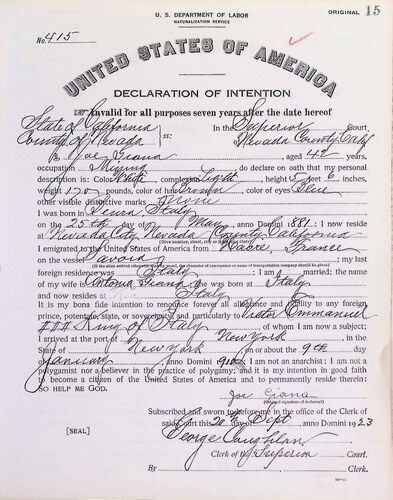 U. S. DEPARTMENT OF LABOR
NATURALIZATION SERVICE
ORIGINAL 15
No. 415
UNITED STATES OF AMERICA
DECLARATION OF INTENTION
Invalid for all purposes seven years after the date hereof
State of California
In the Superior Court,
County of Nevada ss: Nevada County, Calif
I, Joe Giona, aged 42 years,
occupation Mining, do declare on oath that my personal
description is: Color White, complexion Light, height 5 feet 6 inches,
weight 170 pounds, color of hair Brown, color of eyes Blue
other visible distinctive marks None
I was born in Italy
on the 25th day of May, anno Domini 1881; I now reside
at Nevada City Nevada County California
(Give number, street, city or town, and State.)
I emigrated to the United States of America from Havre, France
on the vessel Savoia; my last
(If the alien arrived otherwise than by vessel, the character of conveyance or name of transportation company should be given.)
foreign residence was Italy; I am married; the name
of my wife is Antonia Giona; she was born at Italy
and now resides at Italy
It is my bona fide intention to renounce forever all allegiance and fidelity to any foreign
prince, potentate, state, or sovereignty, and particularly to Victor Emmanuel
III King of Italy, of whom I am now a subject;
I arrived at the port of New York, in the
State of New York, on or about the 9th day
of January, anno Domini; I am not an anarchist; I am not a
polygamist nor a believer in the practice of polygamy; and it is my intention in good faith
to become a citizen of the United States of America and to permanently reside therein:
SO HELP ME GOD.
Joe Giona
(Original signature of declarant.)
Subscribed and sworn to before me in the office of the Clerk of
said Court this 20th day of Sept, anno Domini 1923
[SEAL]
George Coughlan
Clerk of the Superior Court.
By, Clerk.